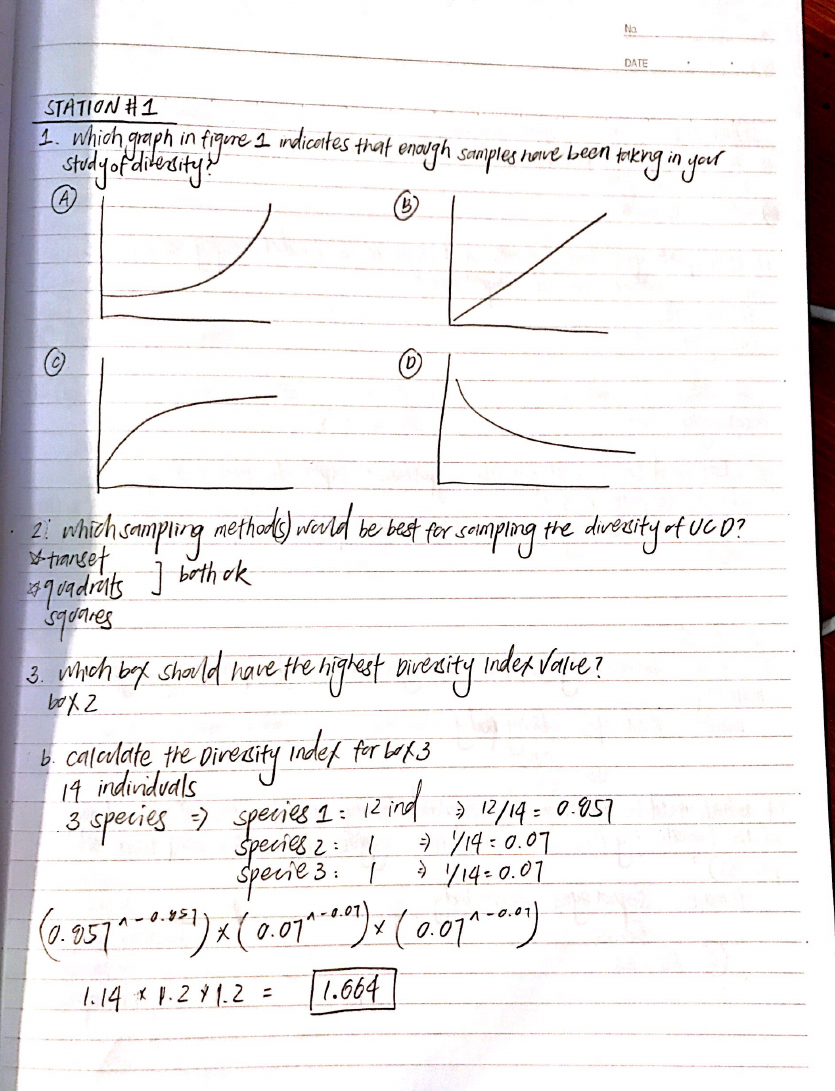 No.
DATE
STATION #1
1. Which graph in figure 1 indicates that enough samples have been taking in your
study of diversity?
A
B
C
D
2. which sampling method(s) would be best for sampling the diversity of UCD?
* transet
* quadrats ] both ok
squares
3. which box should have the highest Diversity Index Value?
box 2
b. calculate the Diversity Index for box 3
14 individuals
3 species => species 1: 12 ind => 12/14 = 0.857
species 2: 1 => 1/14 = 0.07
specie 3: 1 => 1/14 = 0.07
(0.857^-0.857) x (0.07^-0.07) x (0.07^-0.07)
1.14 x 1.2 x 1.2 = 1.664